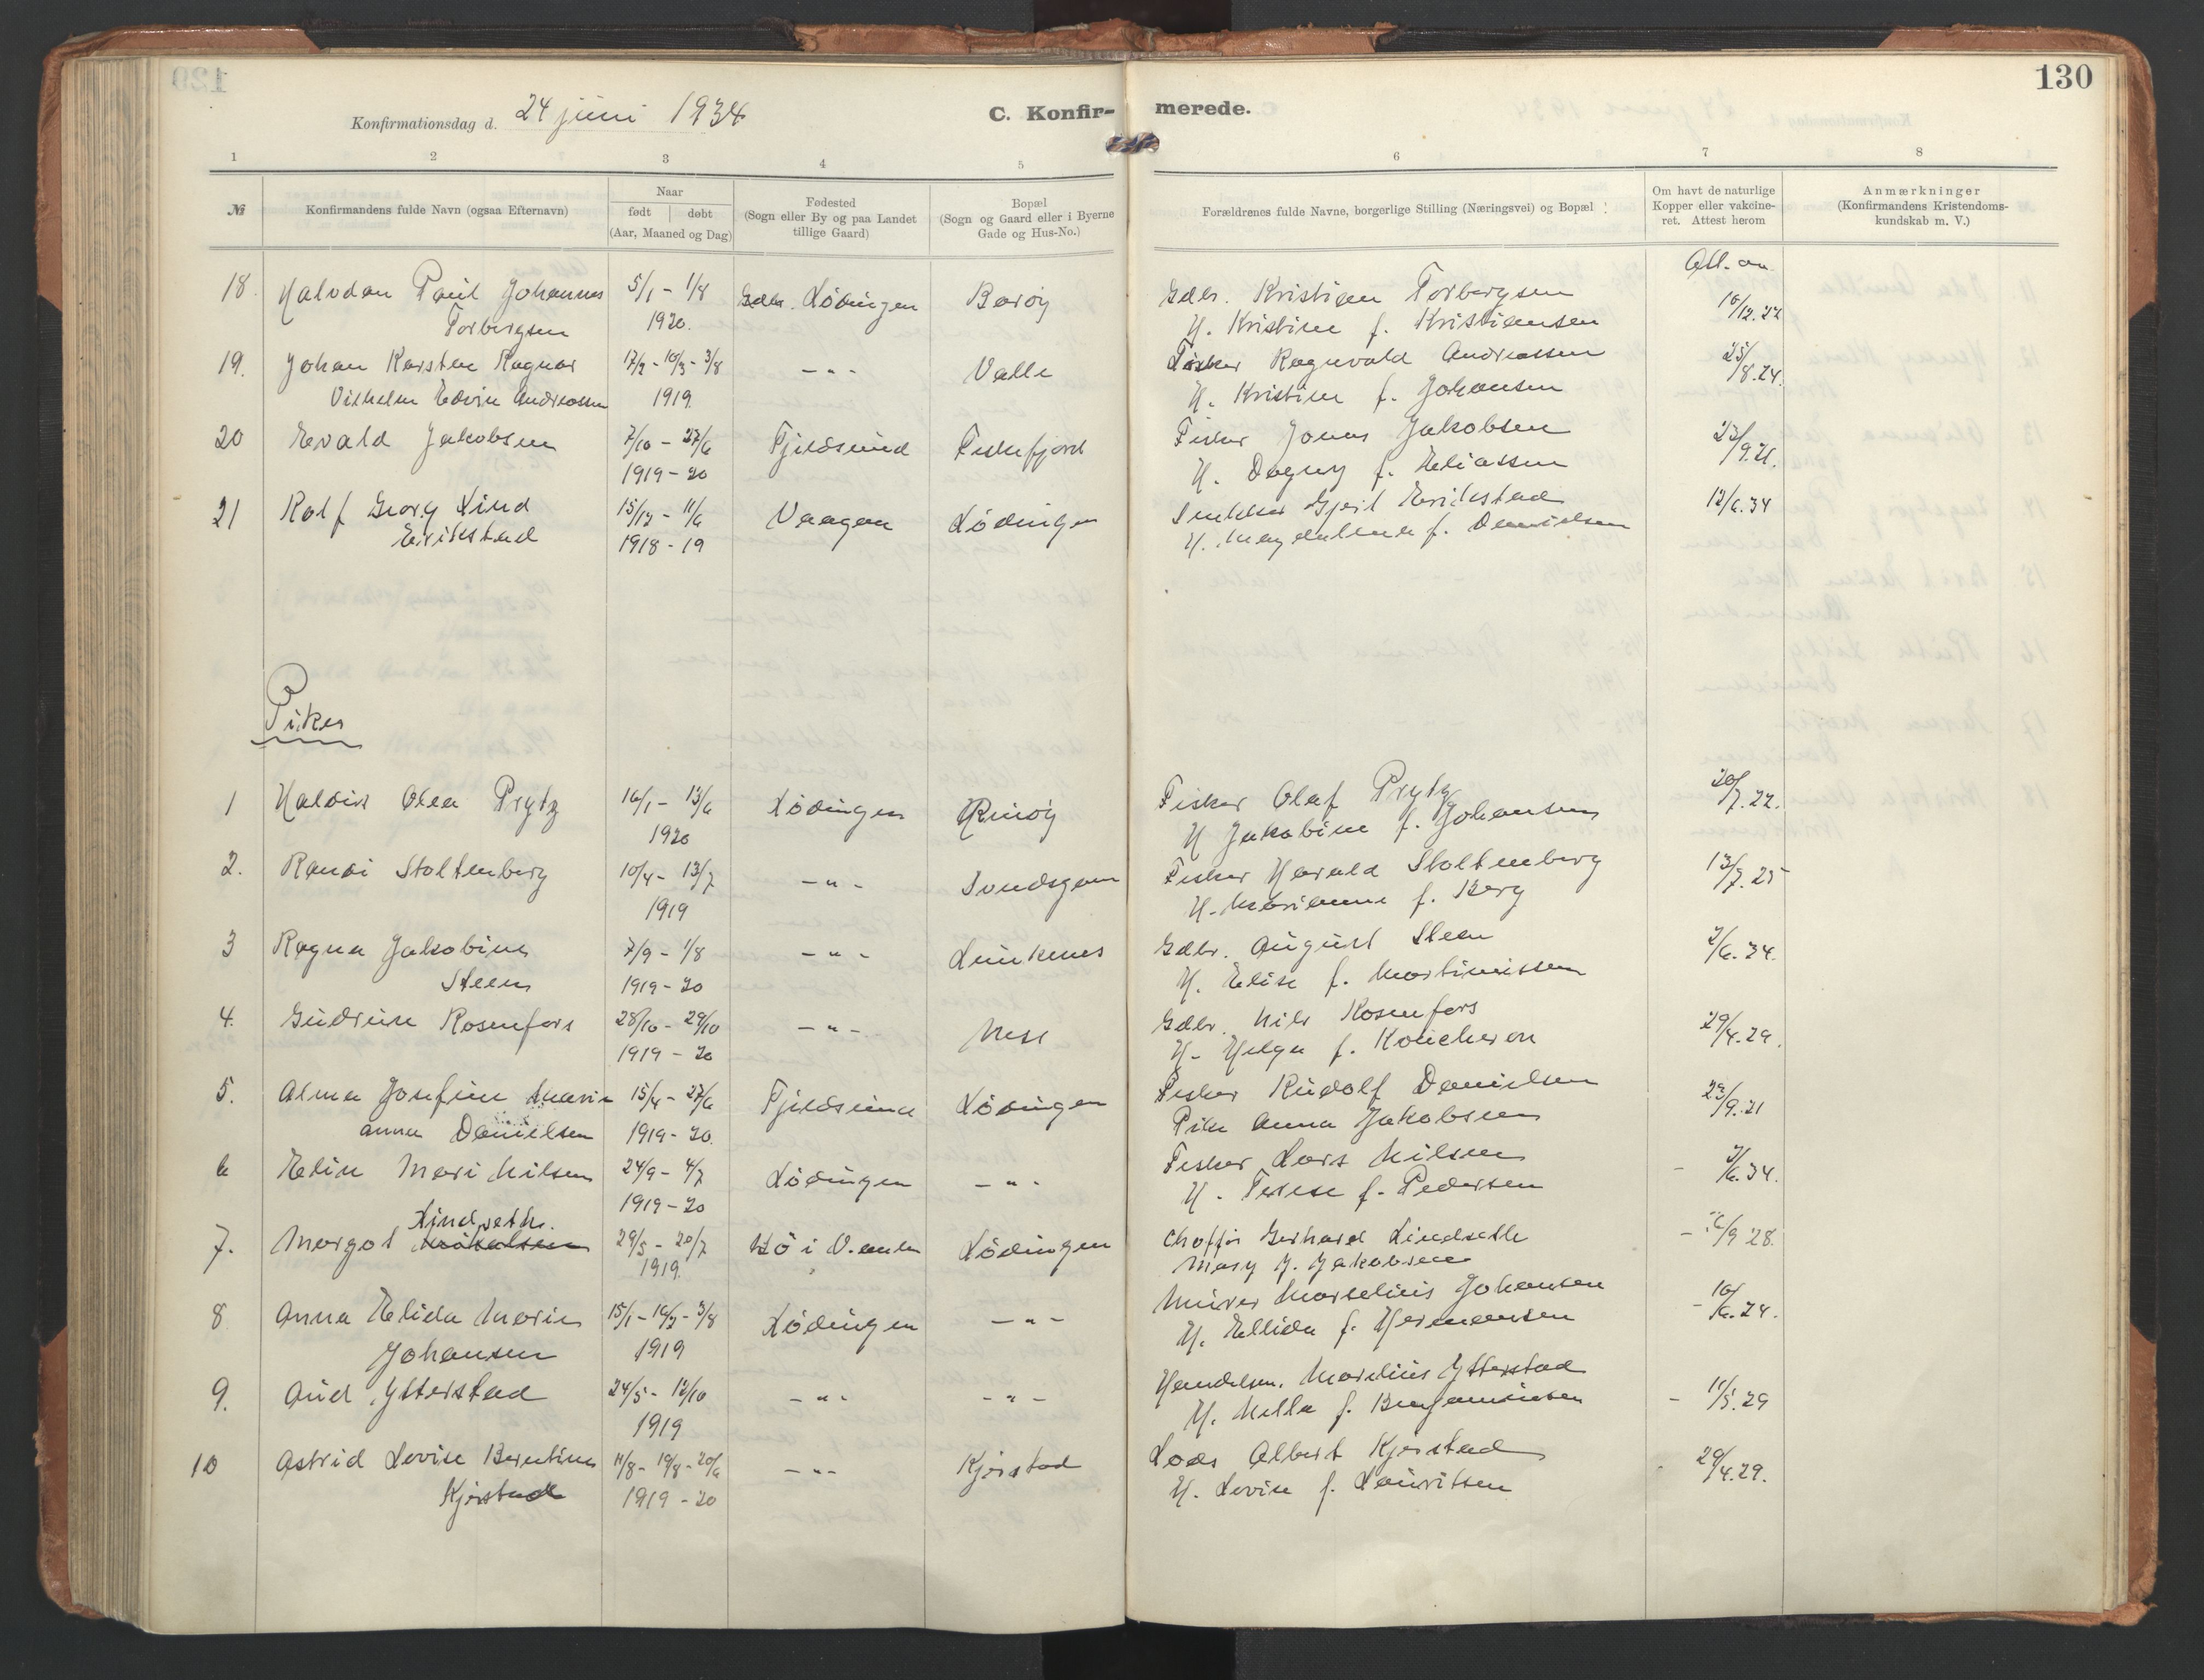 130
Konfirmationsdag d. 24 juni 1934
C. Konfir-
merede.
1 2 3 4 5 6 7 8
№
Konfirmandens fulde Navn (ogsaa Efternavn)
Naar
født døbt
(Aar, Maaned og Dag)
Fødested
(Sogn eller By og paa Landet
tillige Gaard)
Bopæl
(Sogn og Gaard eller i Byerne
Gade og Hus-No.)
Forældrenes fulde Navne, borgerlige Stilling (Næringsvei) og Bopæl
Om havt de naturlige
Kopper eller vakcine-
ret. Attest herom
Anmærkninger
(Konfirmandens Kristendoms-
kundskab m. V.)
Att. av
18. Halvdan Paul Johannes 5/1 - 1/8 Lødingen Barøy Gdbr. Kristian Torbergsen 16/12.22
Torbergsen 1920. H. Kristine f. Kristiansen
19. Johan Karsten Ragnar 17/2 - 16/3 - 3/8 - " - Valle Fisker Ragnvald Andreassen 25/8.24.
Vilhelm Edvin Andreassen 1919 H. Kristine f. Johansen
20 Evald Jakobsen 7/10 - 27/6 Fjeldsund Fiskefjord Fisker Jonas Jakobsen 23/9.21.
1919 - 20 H. Dagny f. Eliassen
21 Rolf Georg Lind 15/12 - 11/6 Vaagan Lødingen Snekker Erikstad 12/6.34
Erikstad 1918 - 19 H. Magdalena f. Danielsen
Piker
1 Haldis Olea Prytz 16/1 - 13/6 Lødingen Rinøy Fisker Olaf Prytz 20/7.22.
1920 H Jakobine f. Johansen
2. Randi Stoltenberg 10/4 - 13/7 - " - Fisker Harald Stoltenberg 13/7.25
1919 H. Marianne f. Berg
3 Ragna Jakobine 7/9 - 1/8 - " - Gdbr. August Steen 2/6.34.
Steen 1919 - 20 H. Elise f. Martinissen
4. Gudrun Rosenfors 28/10 - 29/10 - " - Nese Gdbr. Nils Rosenfors 29/4.29.
1919 - 20 H. Helga f. Koucheron
5. Alma Josefine Marie 15/4 - 27/6 Fjeldsund Lødingen Fisker Rudolf Danielsen 23/9.21
Anna Danielsen 1919 - 20. Pike Anna Jakobsen
6 Elin Mari Nilsen 24/9 - 4/7 Lødingen - " - Fisker Lars Nilsen - 2/6.34.
1919 - 20 H. Terese f. Pedersen
Lindseth.
7. Margot 29/5 - 20/7 Lødingen Choffør Gerhard Lindseth - 6/9 28.
1919. Mary f. Jakobsen
8. Anna Elida Marie 15/1 - 16/3 - 3/8 Lødingen - " - Murer Marselius Johansen - 16/6.24.
Johansen 1919 H. Ellida f. Hermansen
9. Aud Ytterstad 24/5 - 12/10 - " - - " - Handelsm. Marelius Ytterstad - 11/5.29
1919 H. Milla f. Benjaminsen
10 Astrid Lovise Berntine 11/8 - 19/8 - 20/6 - " - Kjerstad Lods Albert Kjerstad 29/4.29.
Kjerstad 1919 - 20 H. Lovise f. Lauritsen